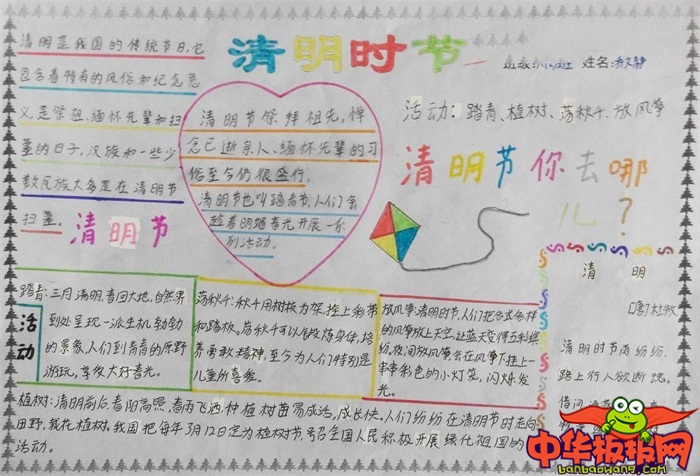 清明时节
班级: 姓名:
清明是我国的传统节日,它
包含着特有的风俗和纪念意
义,是祭祖、缅怀先辈和扫
墓的日子,汉族和一些少
数民族大多是在清明节
扫墓。
清明节
清明节祭拜祖先,悼
念已逝亲人、缅怀先辈的习
俗至今仍很盛行。
清明节也叫踏青节,人们会
趁着明媚春光开展一系
列活动。
活动:踏青、植树、荡秋千、放风筝
清明节你去哪
儿?
活动
踏青:三月清明,春回大地,自然界
到处呈现一派生机勃勃
的景象,人们到青青的原野
游玩,享受大好春光。
荡秋千:秋千用树枝为架,拴上彩带
和踏板。荡秋千可以锻炼身体,培
养勇敢精神,至今为人们特别是
儿童所喜爱。
放风筝:清明时节,人们把各式各样
的风筝放上天空,让蓝天变得五彩缤
纷,夜间放风筝会在风筝下挂上一
串串彩色的小灯笼,闪烁发
光。
清 明
[唐]杜牧
清明时节雨纷纷,
路上行人欲断魂。
借问
植树:清明前后,春阳高照,春雨飞洒,种植树苗易成活,成长快。人们纷纷在清明节时走向
田野,栽花植树。我国把每年3月12日定为植树节,号召全国人民积极开展绿化祖国的
活动。
中华板报网
banbaowang.com